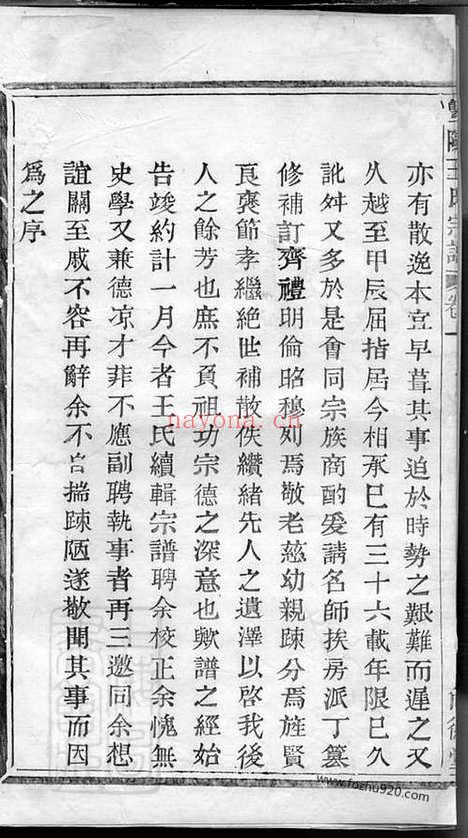 陽王氏宗譜 卷一
亦有散逸本宜早葺其事迫於時勢之艱難而遲之又
久越至甲辰屈指居今相承已有三十六載年限已久
訛舛又多於是會同宗族商酌爰請名師挨房派丁纂
修補訂齊禮明倫昭穆列焉敬老慈幼親疎分焉旌賢
良褒節孝繼絕世補散佚纘緒先人之遺澤以啓我後
人之餘芳也庶不負祖功宗德之深意也歟譜之經始
告竣約計一月今者王氏續輯宗譜聘余校正余愧無
史學又兼德凉才菲不應副聘執事者再三邀同余想
誼關至戚不容再辭余不旨揣疎陋遂敬聞其事而因
爲之序
nayona.cn
www.fashu920.com